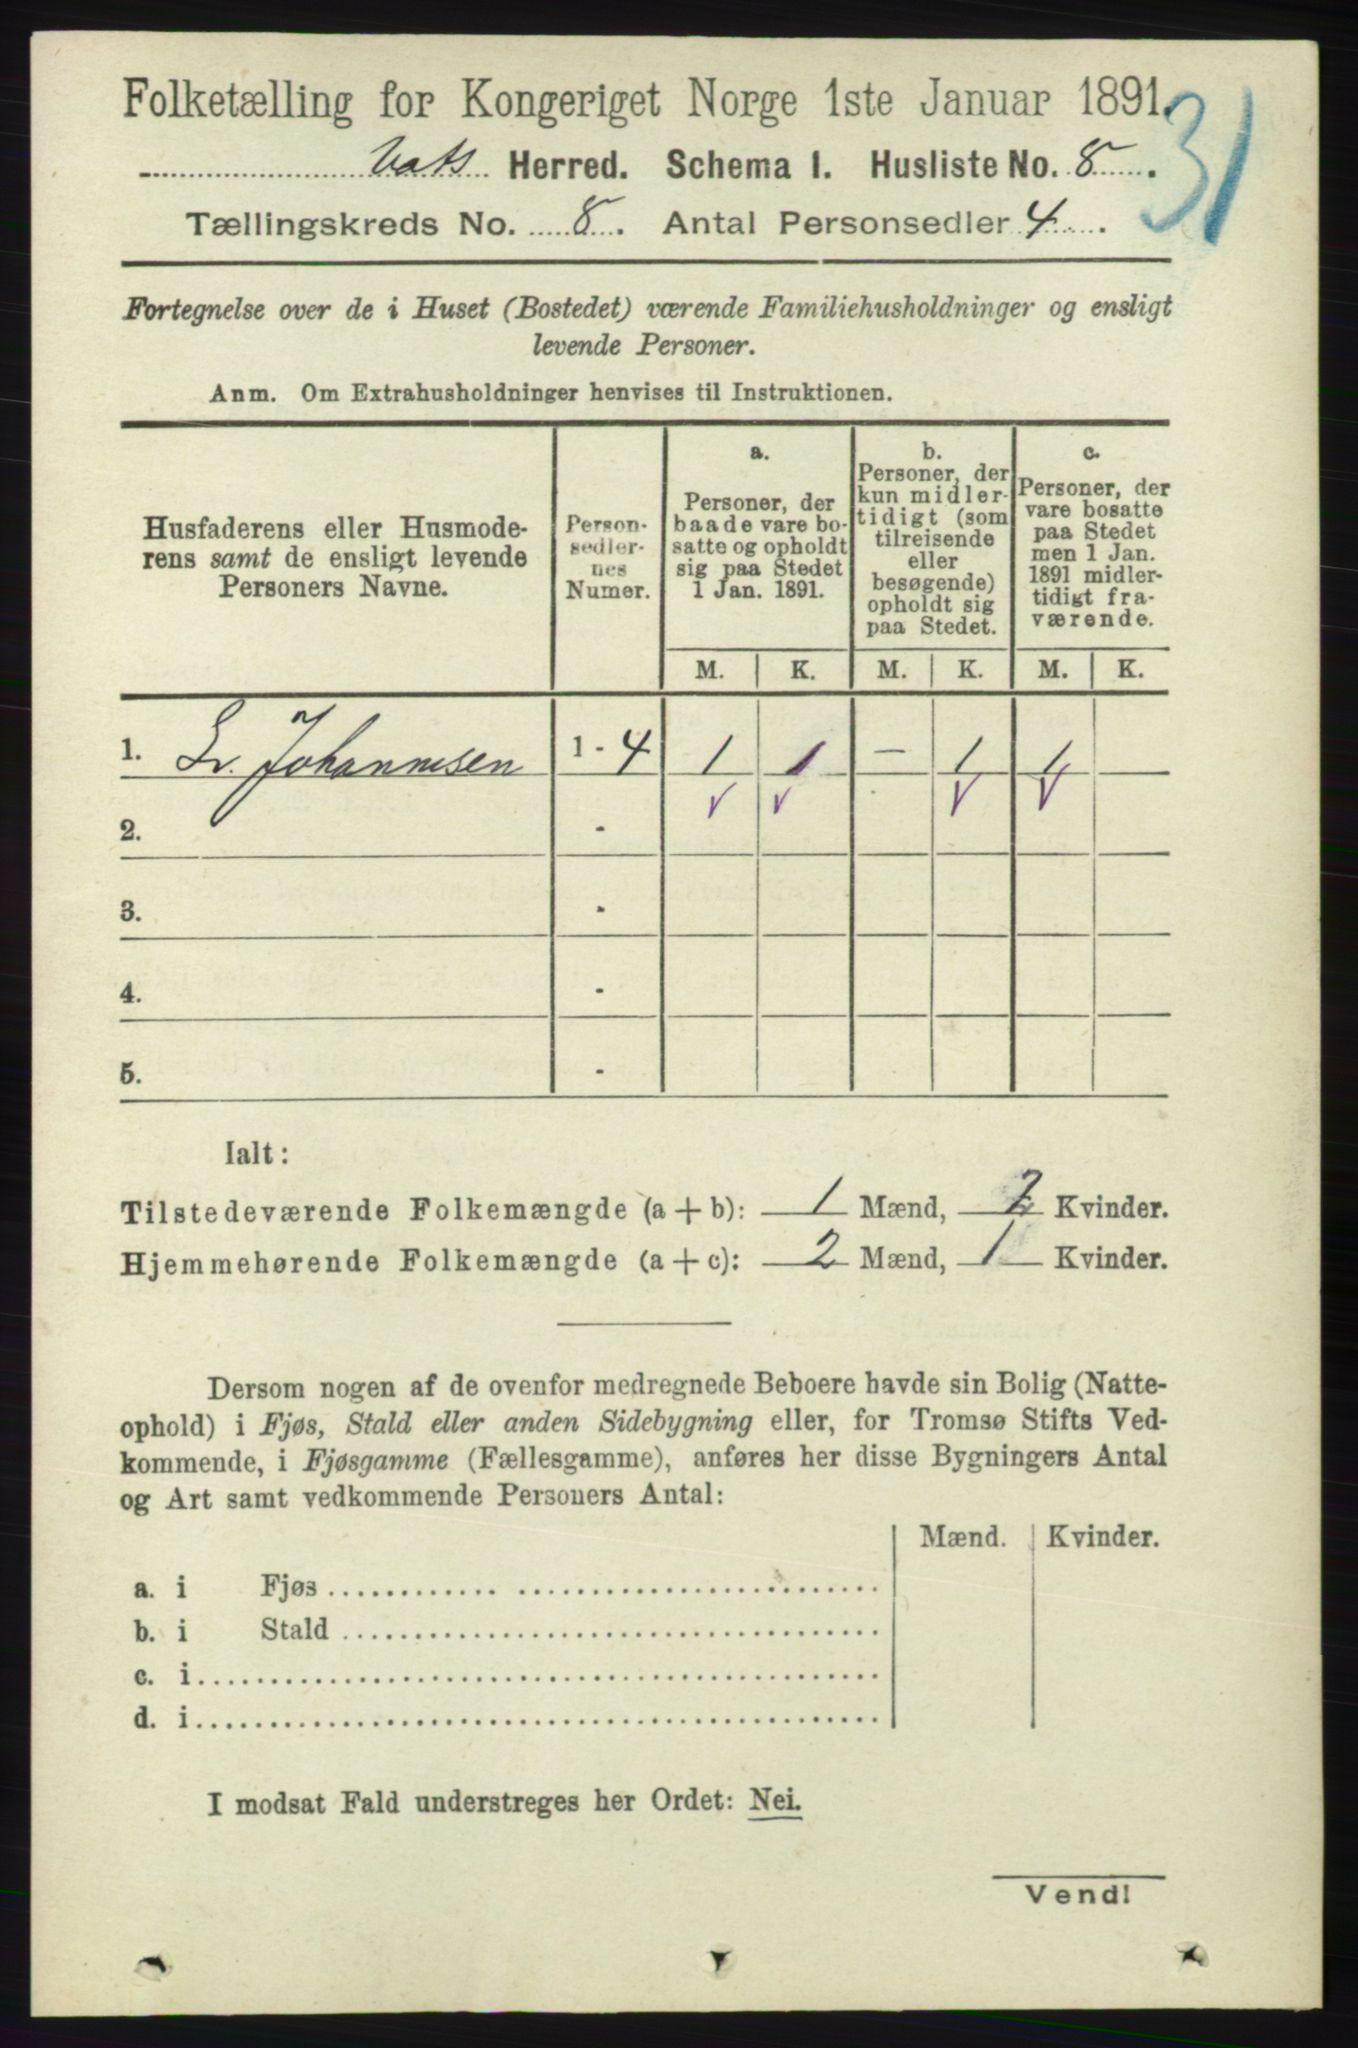 Folketælling for Kongeriget Norge 1ste Januar 1891.
31
Vats Herred. Schema I. Husliste No. 8.
Tællingskreds No. 8. Antal Personsedler 4.
Fortegnelse over de i Huset (Bostedet) værende Familiehusholdninger og ensligt
levende Personer.
Anm. Om Extrahusholdninger henvises til Instruktionen.
Husfaderens eller Husmode-
rens samt de ensligt levende
Personers Navne.
Person-
sedler-
nes
Numer.
a.
Personer, der
baade vare bo-
satte og opholdt
sig paa Stedet
1 Jan. 1891.
b.
Personer, der
kun midler-
tidigt (som
tilreisende
eller
besøgende)
opholdt sig
paa Stedet.
c.
Personer, der
vare bosatte
paa Stedet
men 1 Jan.
1891 midler-
tidigt fra-
værende.
M. K. M. K. M. K.
1. Johannesen 1 - 4 1 1 — 1 1
2. -
3. -
4. -
5. -
Ialt:
Tilstedeværende Folkemængde (a + b): 1 Mænd, 2 Kvinder.
Hjemmehørende Folkemængde (a + c): 2 Mænd, 1 Kvinder.
Dersom nogen af de ovenfor medregnede Beboere havde sin Bolig (Natte-
ophold) i Fjøs, Stald eller anden Sidebygning eller, for Tromsø Stifts Ved-
kommende, i Fjøsgamme (Fællesgamme), anføres her disse Bygningers Antal
og Art samt vedkommende Personers Antal:
Mænd. Kvinder.
a. i Fjøs
b. i Stald
c. i
d. i
I modsat Fald understreges her Ordet: Nei.
Vend!